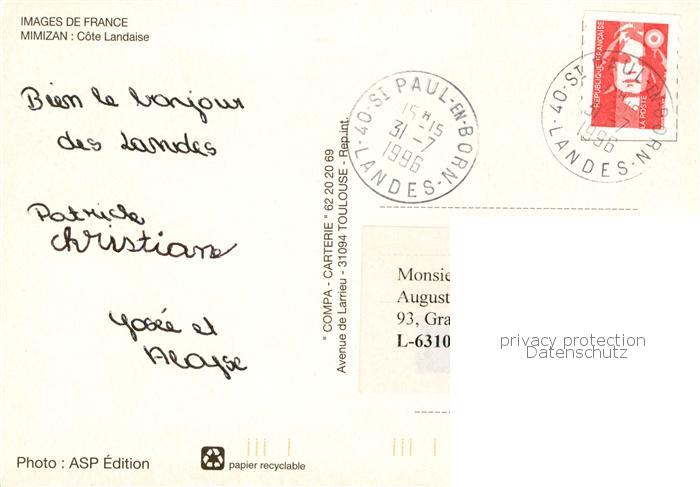 IMAGES DE FRANCE
MIMIZAN : Côte Landaise
Bien le bonjour
des Landes
Patrick
Christiane
Josée et
Aloyse
Photo : ASP Édition
papier recyclable
" COMPA - CARTERIE " 62 20 20 69
Avenue de Larrieu - 31094 TOULOUSE - Rep.int.
40-ST PAUL-EN-BORN
15 H 15
31-7
1996
LANDES
REPUBLIQUE FRANÇAISE
LA POSTE
40-ST PAUL-EN-BORN
31-7
1996
LANDES
Monsie
August
93, Gra
L-6310
privacy protection
Datenschutz